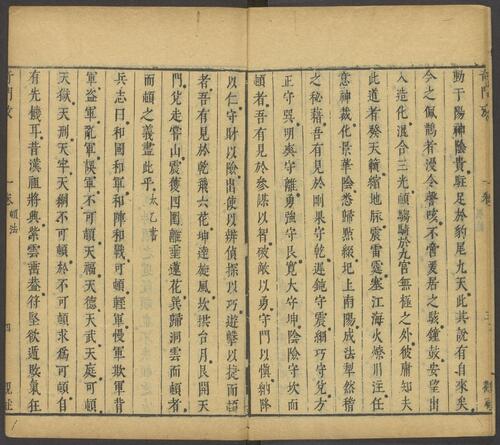 動于陽神陰貴駐足於豹尾九天此其說有自來矣
今之佩鶻者漫令聲咳不審爰居之駭鐘鼓安望出
入造化混合三光頓驂騎於九宮無極之外彼庸知夫
此道者癸天籟縮地脉震雷霆塞江海火燎川注任
意神裁化景華陰悉歸黙綴圯上南陽成法犁然稽
之秘藉吾有見於剛果守乾遲鈍守震綱巧守兌方
正守巽明爽守離勇強守艮寬大守坤陰險守坎而
頓者吾有見於參謀以智破敵以勇守門以慎納降
以仁守財以儉出使以辨偵探以巧遊擊以捷而頓
者吾有見於乾飛六花坤達旋風坎拱台月艮開天
門兌走常山震獲四圍離垂蓮花巽歸洞雲而頓者
而頓之義盡此乎太乙書
兵志曰和國和軍和陣和戰可頓輕軍慢軍欺軍背
軍盜軍亂軍誤軍不可頓天福天德天武天庭可頓
天獄天刑天牢天網不可頓於不可頓求為可頓自
有先幾耳昔漢雁將與紫雲罟蠡符堅欲遁敗氣狂
奇門
一卷 頓法
四